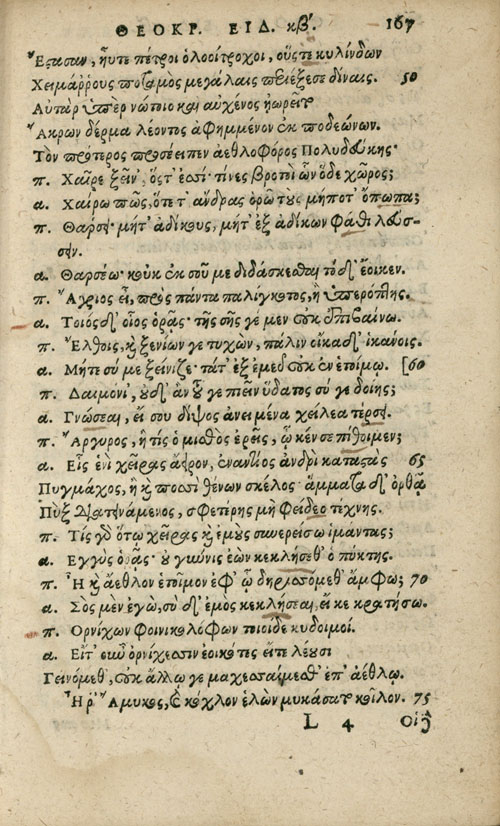 ΘΕΟΚΡ. ΕΙΔ. κβ'. 167
Ἔστασαν, ἠΰτε πέτροι ὀλοοίτροχοι, οὕστε κυλίνδων
Χειμάρρους ποταμὸς μεγάλαις περιέξεσε δίναις. 50
Αὐτὰρ ὑπὲρ νώτοιο καὶ αὐχένος ἠωρεῖτο
Ἄκρων δέρμα λέοντος ἀφημμένον ἐκ ποδεώνων.
Τὸν πρότερος προσέειπεν ἀεθλοφόρος Πολυδεύκης·
π. Χαῖρε ξεῖν', ὅστ' ἐσσί· τίνες βροτοὶ ὧν ὅδε χῶρος;
α. Χαίρω πῶς, ὅτε τ' ἄνδρας ὁρῶ τοὺς μήποτ' ὄπωπα;
π. Θάρσει· μήτ' ἀδίκους, μήτ' ἐξ ἀδίκων φάθι λεύσ-
σειν.
α. Θαρσέω· κοὐκ ἐκ σοῦ με διδάσκεσθαι τόδ' ἔοικεν.
π. Ἄγριος εἶ, πρὸς πάντα παλίγκοτος, ἢ ὑπερόπλης.
α. Τοιόσδ' οἷος ὁρᾷς· τῆς σῆς γε μὲν οὐκ ἐπιβαίνω.
π. Ἔλθοις, καὶ ξενίων γε τυχὼν, πάλιν οἴκαδ' ἱκάνοις.
α. Μήτε σύ με ξείνιζε· τάτ' ἐξ ἐμεῦ οὐκ ἐν ἑτοίμῳ. [60
π. Δαιμόνι', οὐδ' ἂν τοῦ γε πιεῖν ὕδατος σύ γε δοίης;
α. Γνώσεαι, εἴ σου δίψος ἀνειμένα χείλεα τέρσει.
π. Ἄργυρος, ἢ τίς ὁ μισθὸς ἐρεῖς, ᾧ κέν σε πίθοιμεν;
α. Εἷς ἑνὶ χεῖρας ἄειρον, ἐναντίος ἀνδρὶ καταστὰς 65
Πυγμάχος, ἢ καὶ ποσσὶ θένων σκέλος· ἄμματα δ' ὀρθὰ
Πὺξ διατεινάμενος, σφετέρης μὴ φείδεο τέχνης.
π. Τίς γὰρ ὅτῳ χεῖρας καὶ ἐμοὺς συνερείσω ἱμάντας;
α. Ἐγγὺς ὁρᾷς· οὐ γύννις ἐὼν κεκλήσεθ' ὁ πύκτης.
π. Ἦ καὶ ἄεθλον ἑτοῖμον ἐφ' ᾧ δηρισόμεθ' ἄμφω; 70
α. Σὸς μὲν ἐγὼ, σὺ δ' ἐμὸς κεκλήσεαι, εἴ κε κρατήσω.
π. Ὀρνίχων φοινικολόφων τοιοίδε κυδοιμοί.
α. Εἴτ' οὖν ὀρνίχεσσιν ἐοικότες εἴτε λέουσι
Γεινόμεθ', οὐκ ἄλλῳ γε μαχεσσαίμεσθ' ἐπ' ἀέθλῳ.
Ἦ ῥ' Ἄμυκος, καὶ κόχλον ἑλὼν μυκάσατο κοῖλον. 75
L 4 Οἱ δ